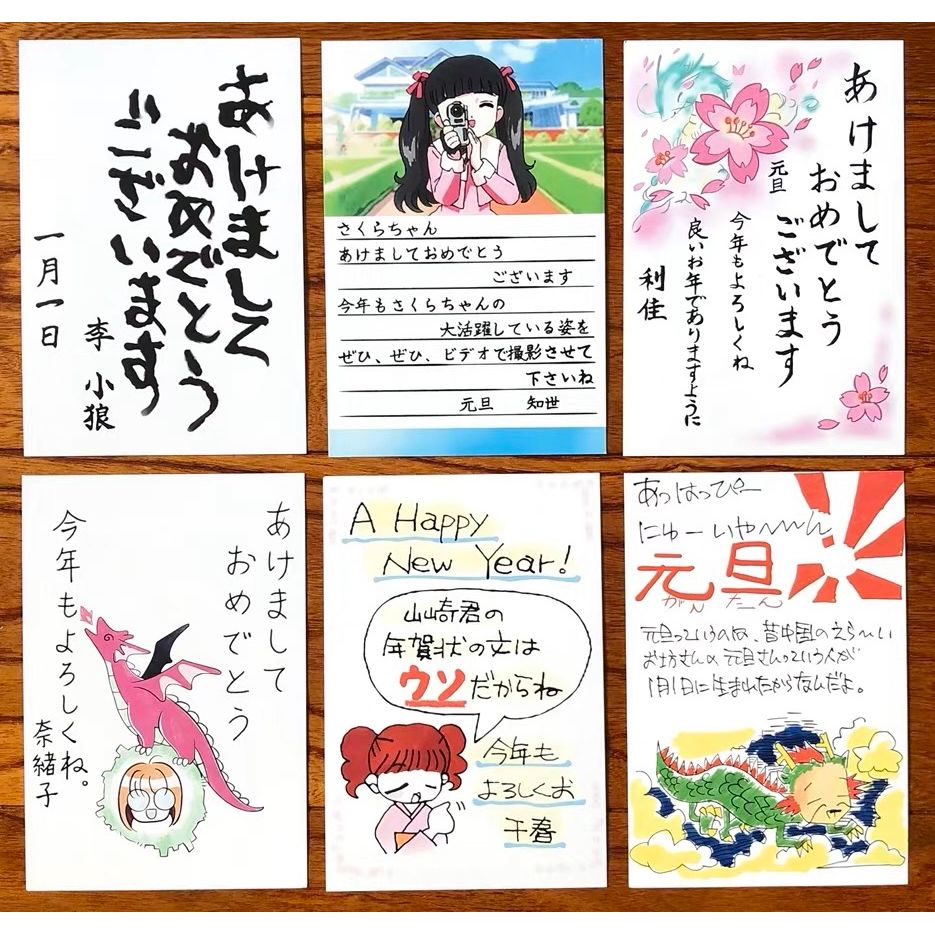 あけまして
おめでとう
ございます
一月一日
李 小狼
さくらちゃん
あけましておめでとう
ございます
今年もさくらちゃんの
大活躍している姿を
ぜひ、ぜひ、ビデオで撮影させて
下さいね
元旦 知世
あけまして
おめでとう
ございます
元旦
今年もよろしくね
良いお年でありますように
利佳
あけまして
おめでとう
今年もよろしくね。
奈緒子
A Happy
New Year!
山崎君の
年賀状の文は
ウソだからね
今年も
よろしくお
千春
あっはっぴー
にゅーいや〜〜〜ん
元旦
がんたん
元旦っていうのは、昔中国のえら〜い
お坊さんの、元旦さんっていう人が
1月1日に生まれたからなんだよ。